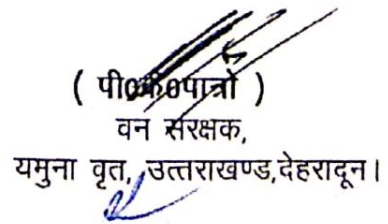 ( पी0के0पात्रो )
वन संरक्षक,
यमुना वृत, उत्तराखण्ड,देहरादून।